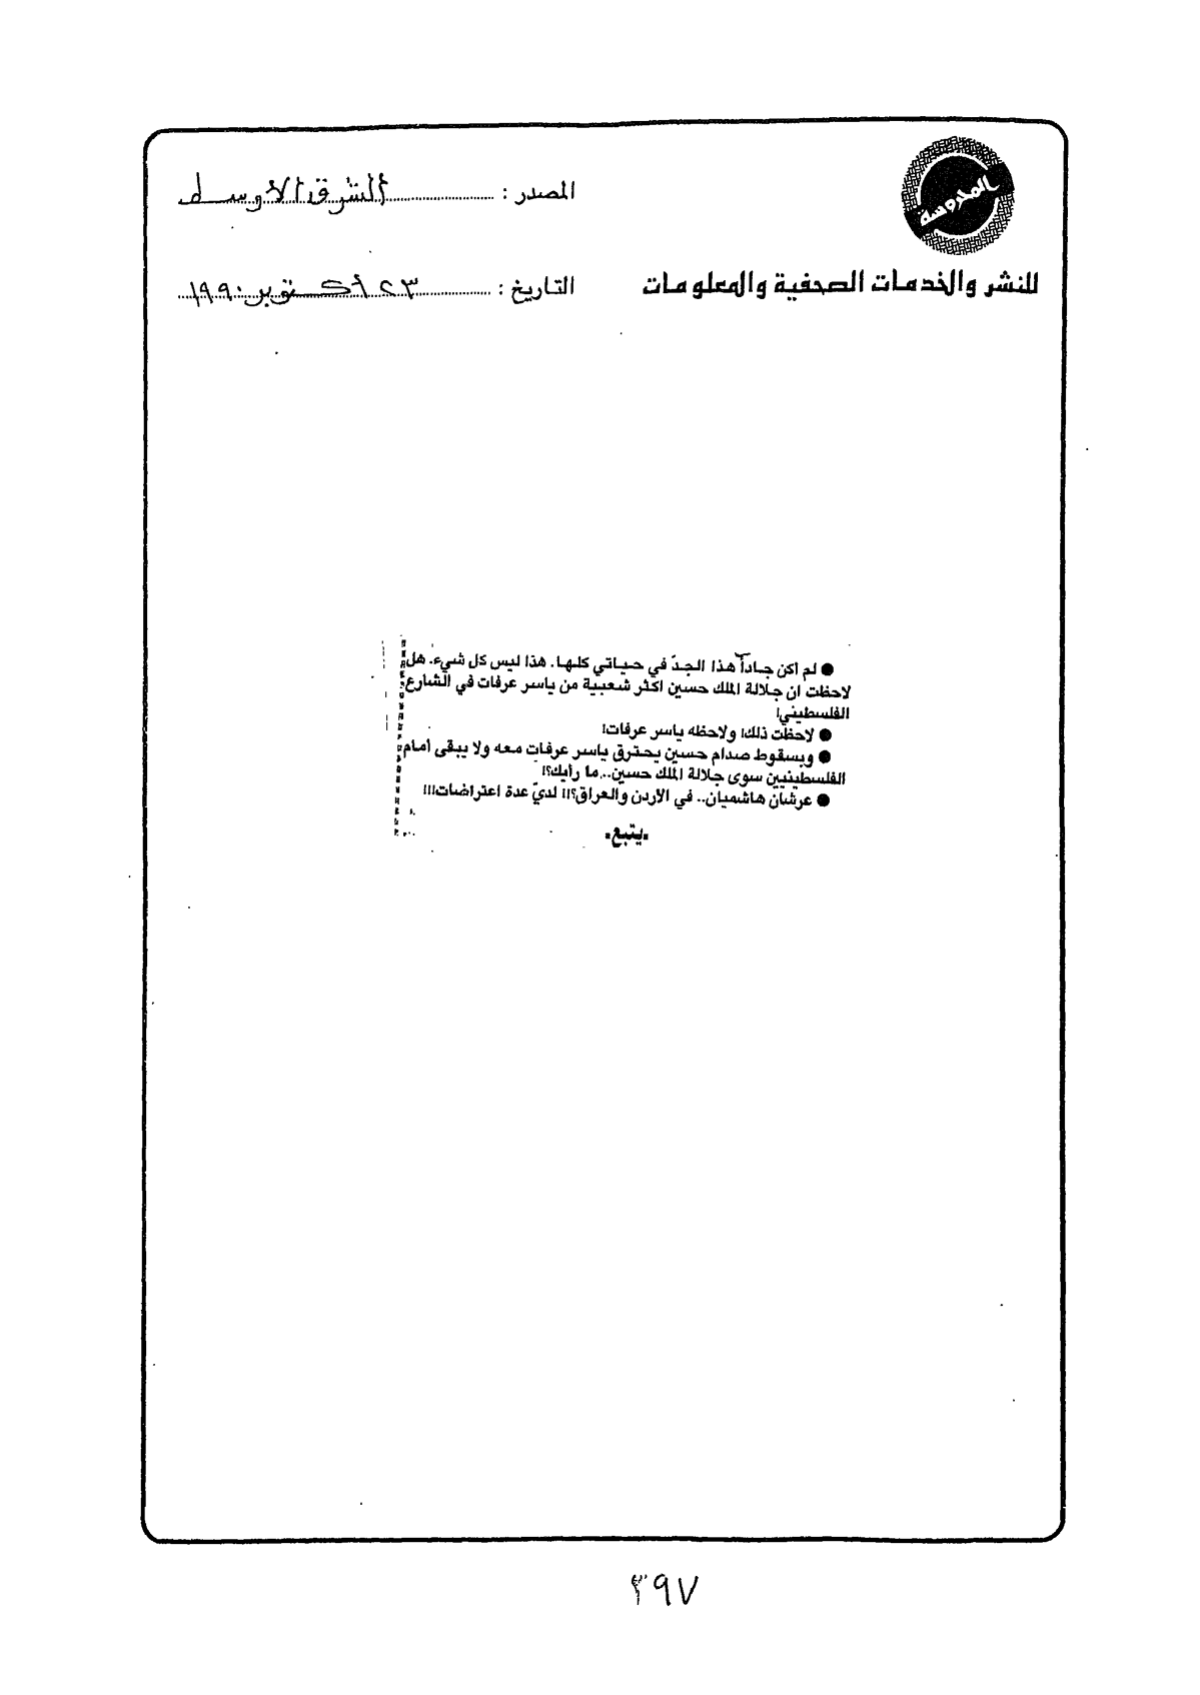 المحروسة
للنشر والخدمات الصحفية والمعلومات
المصدر : الشرق الأوسط
التاريخ : ٢٣ أكتوبر ١٩٩٠
● لم اكن جاداً هذا الجدّ في حياتي كلها. هذا ليس كل شيء. هل
لاحظت ان جلالة الملك حسين اكثر شعبية من ياسر عرفات في الشارع
الفلسطيني!
● لاحظت ذلك! ولاحظه ياسر عرفات!
● وبسقوط صدام حسين يحترق ياسر عرفات معه ولا يبقى أمام
الفلسطينيين سوى جلالة الملك حسين.. ما رأيك؟!
● عرشان هاشميان.. في الأردن والعراق؟!! لديّ عدة اعتراضات!!!
.يتبع.
٣٩٧